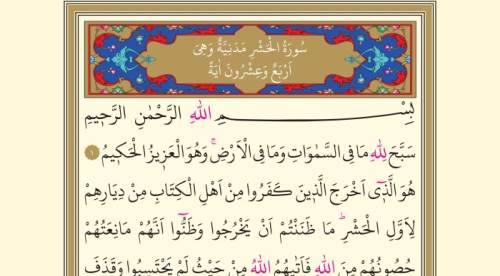 سُورَةُ الْحَشْرِ مَدَنِيَّةٌ وَهِىَ
اَرْبَعٌ وَعِشْرُونَ اٰيَةً
بِسْمِ اللّٰهِ الرَّحْمٰنِ الرَّحٖيمِ
سَبَّحَ لِلّٰهِ مَا فِى السَّمٰوَاتِ وَمَا فِى الْاَرْضِۚ وَهُوَ الْعَزٖيزُ الْحَكٖيمُ ١
هُوَ الَّذٖٓى اَخْرَجَ الَّذٖينَ كَفَرُوا مِنْ اَهْلِ الْكِتَابِ مِنْ دِيَارِهِمْ
لِاَوَّلِ الْحَشْرِؕ مَا ظَنَنْتُمْ اَنْ يَخْرُجُوا وَظَنُّٓوا اَنَّهُمْ مَانِعَتُهُمْ
حُصُونُهُمْ مِنَ اللّٰهِ فَاَتٰيهُمُ اللّٰهُ مِنْ حَيْثُ لَمْ يَحْتَسِبُوا وَقَذَفَ